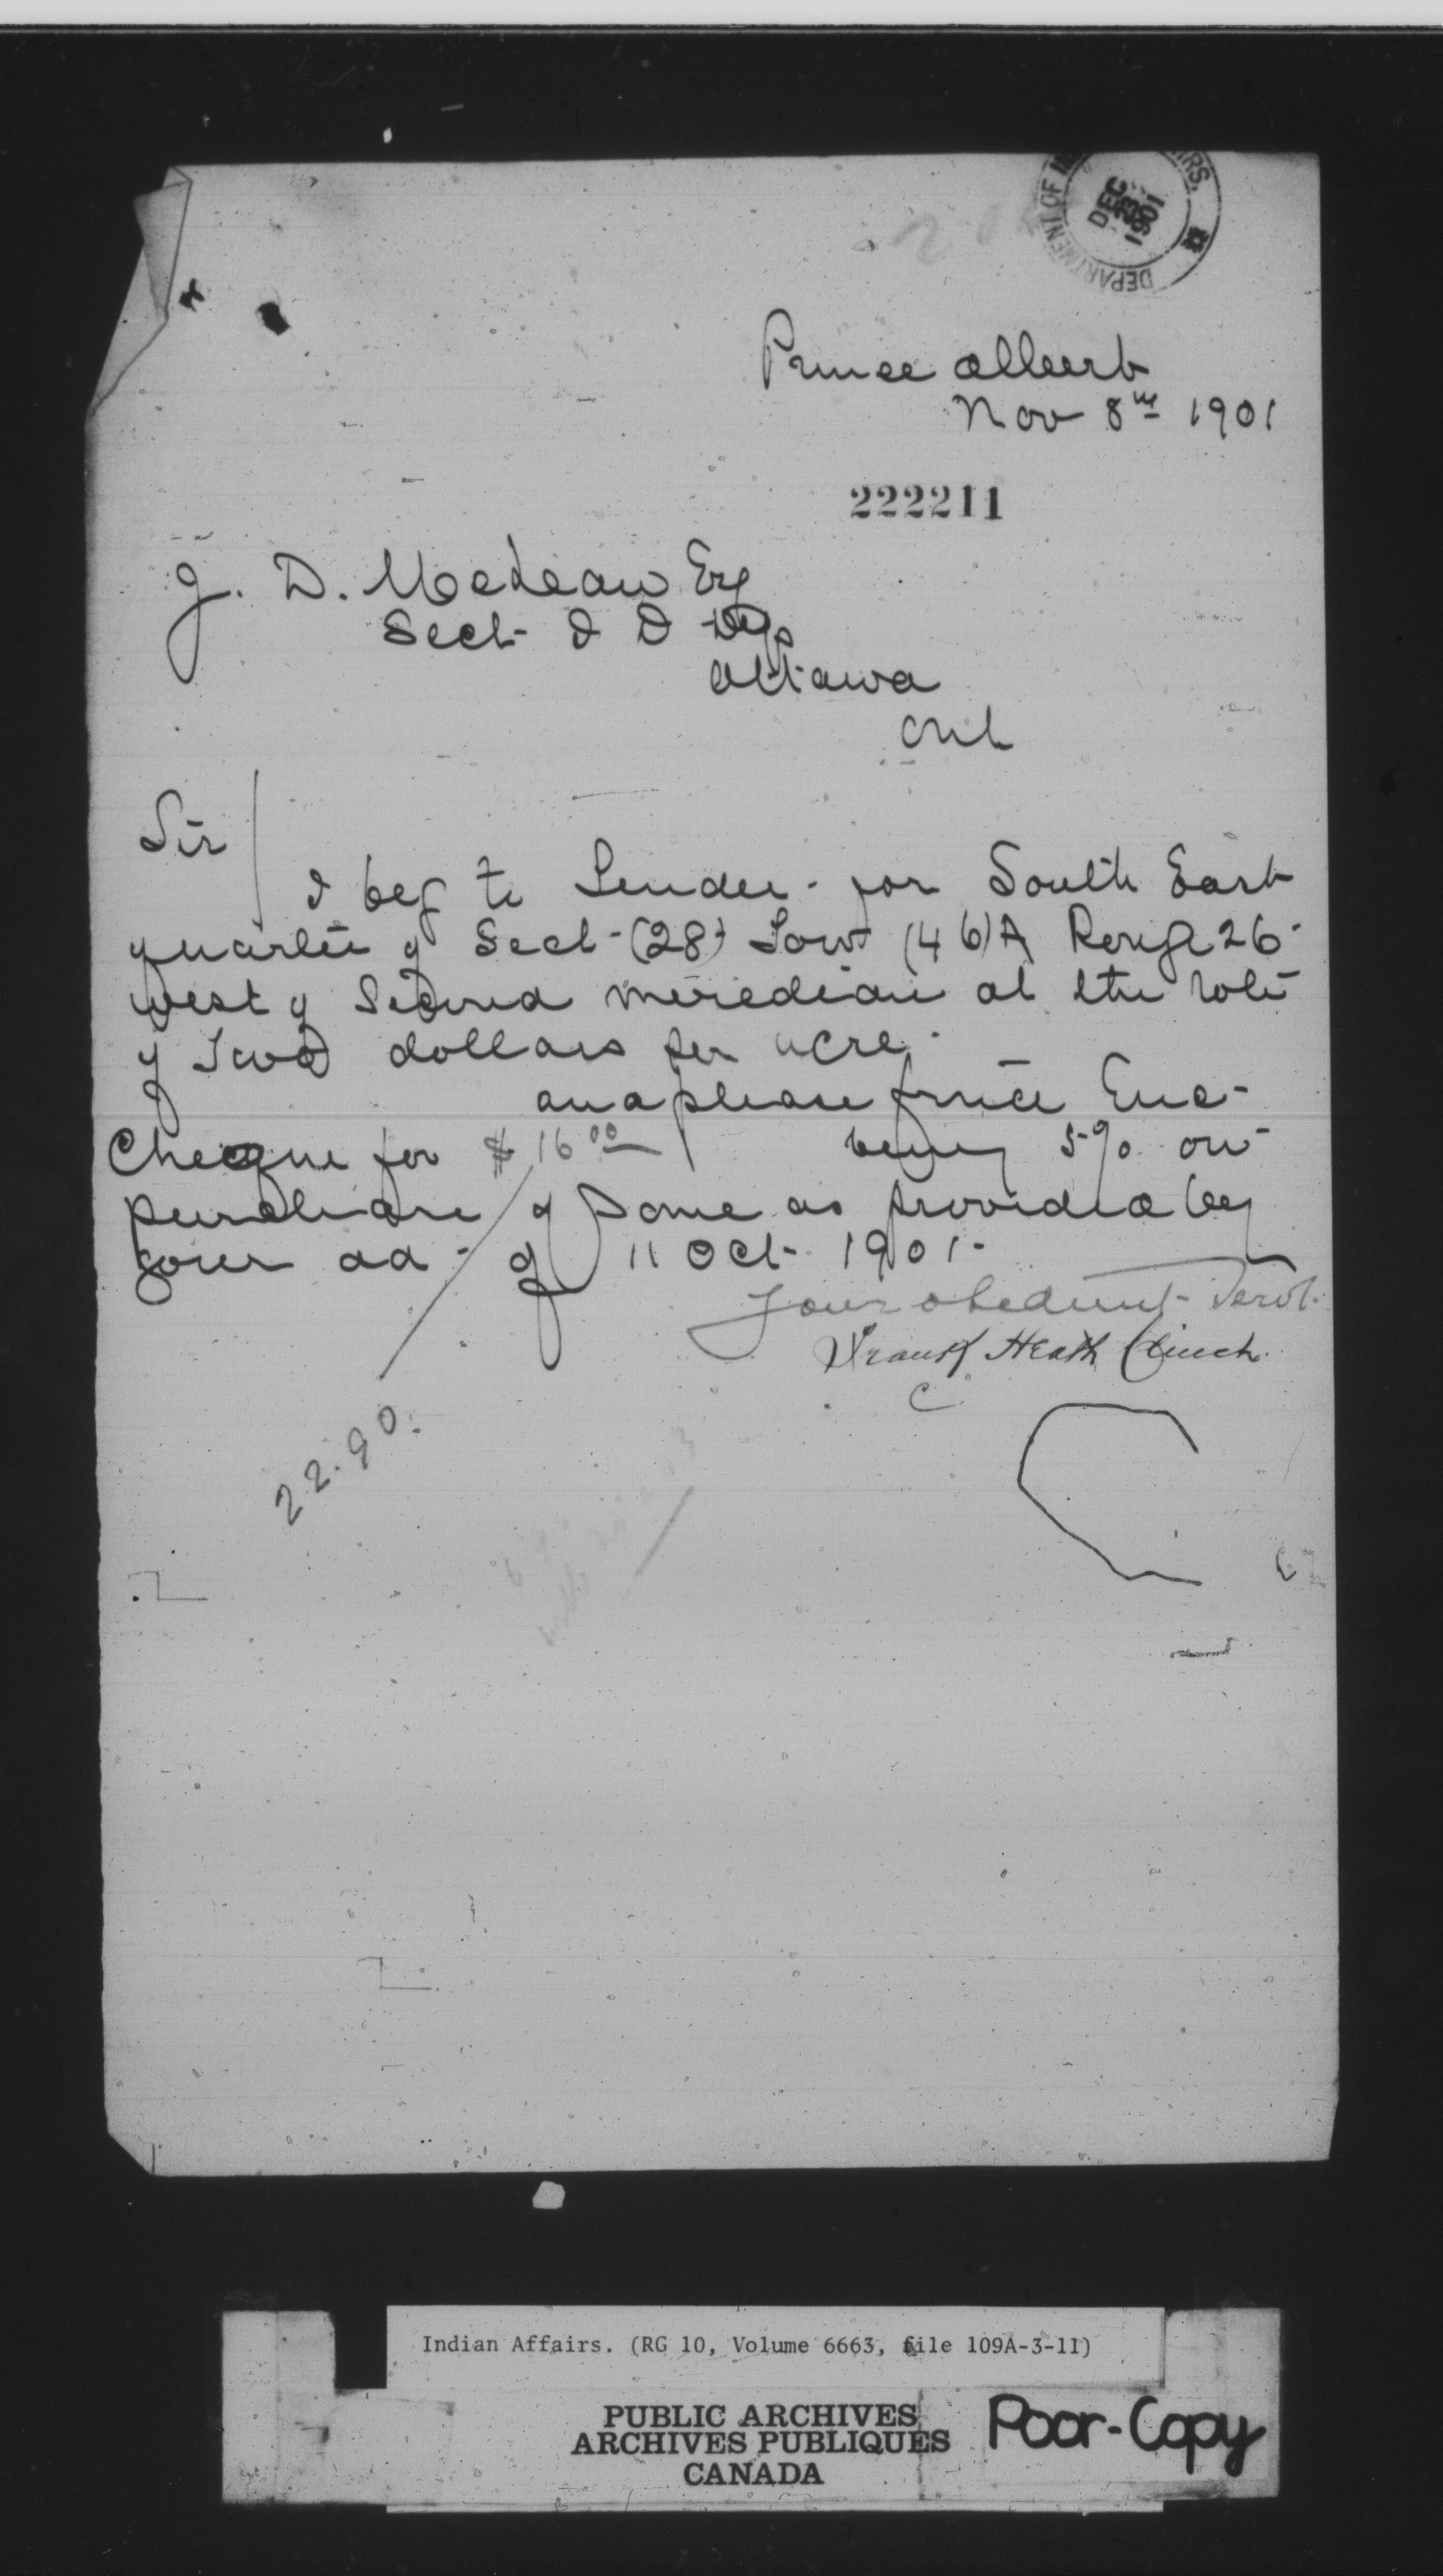 DEPARTMENT OF IN AIRS.
DEC
23
1901
Prince Albert
Nov 8th 1901
222211
J. D. McLean Esq
Sect I D Dep
Ottawa
Ont
Sir/
I beg to Tender for South East
quarter of Sect (28) Town (46)A Range 26
west of Second meredian at the rate
of Two dollars per acre.
and please find Enc
Cheque for $16 00 being 5% on
purchase of same as provided by
your ad of 11 Oct 1901
Your obedient Servt.
Frank Heath Clinch
22.90.
Indian Affairs. (RG 10, Volume 6663, file 109A-3-11)
PUBLIC ARCHIVES
ARCHIVES PUBLIQUES
CANADA
Poor-Copy